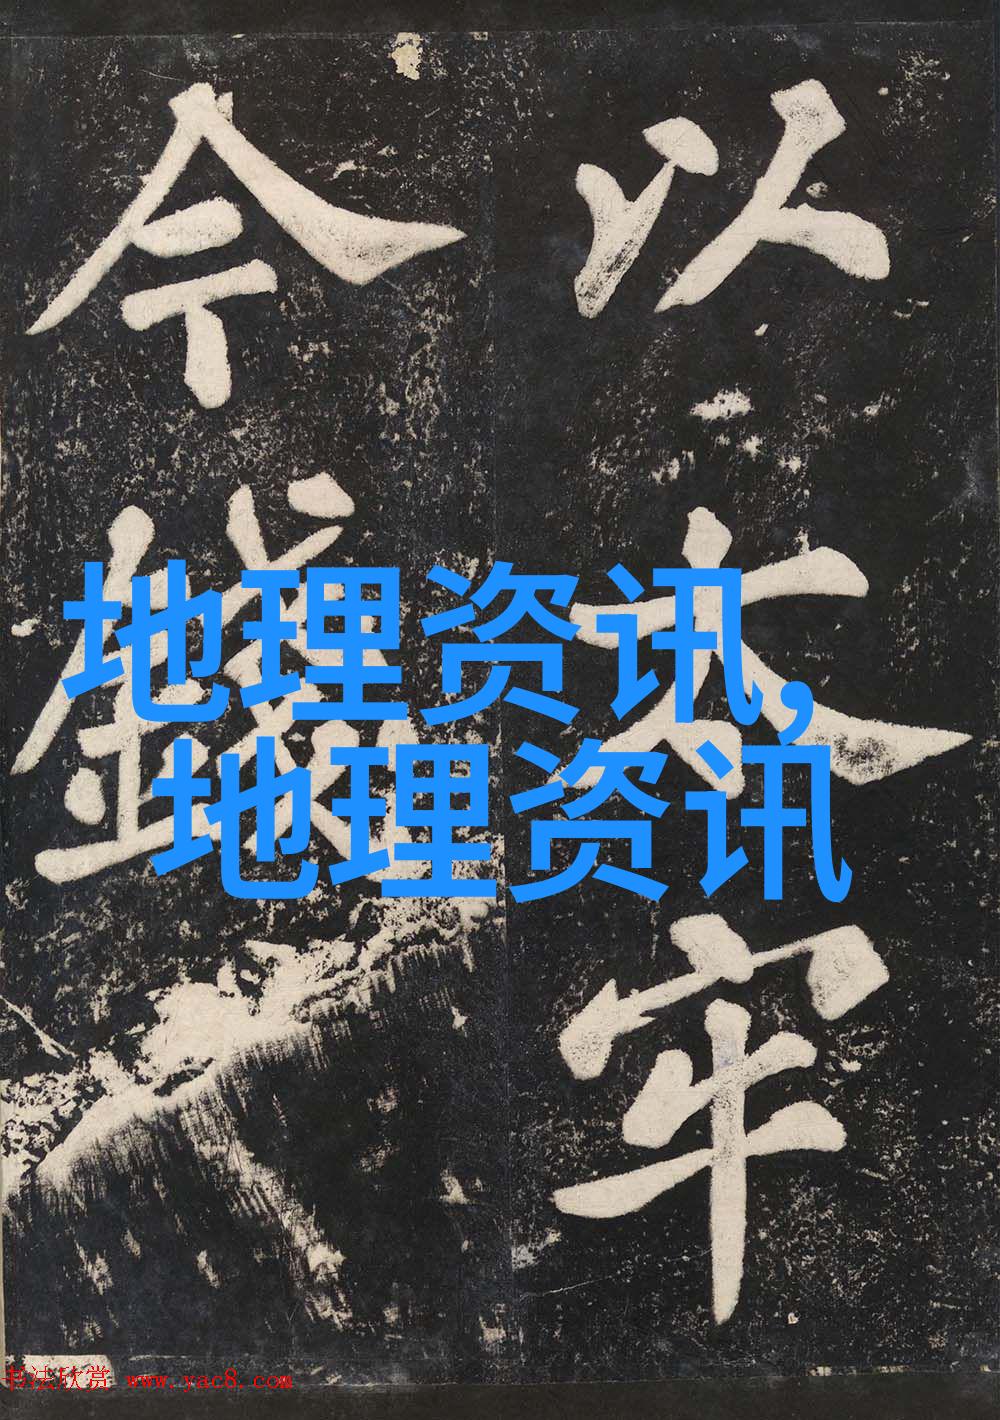 以太牢
今
地理资讯,
地理资讯
书法欣赏 www.yac8.com